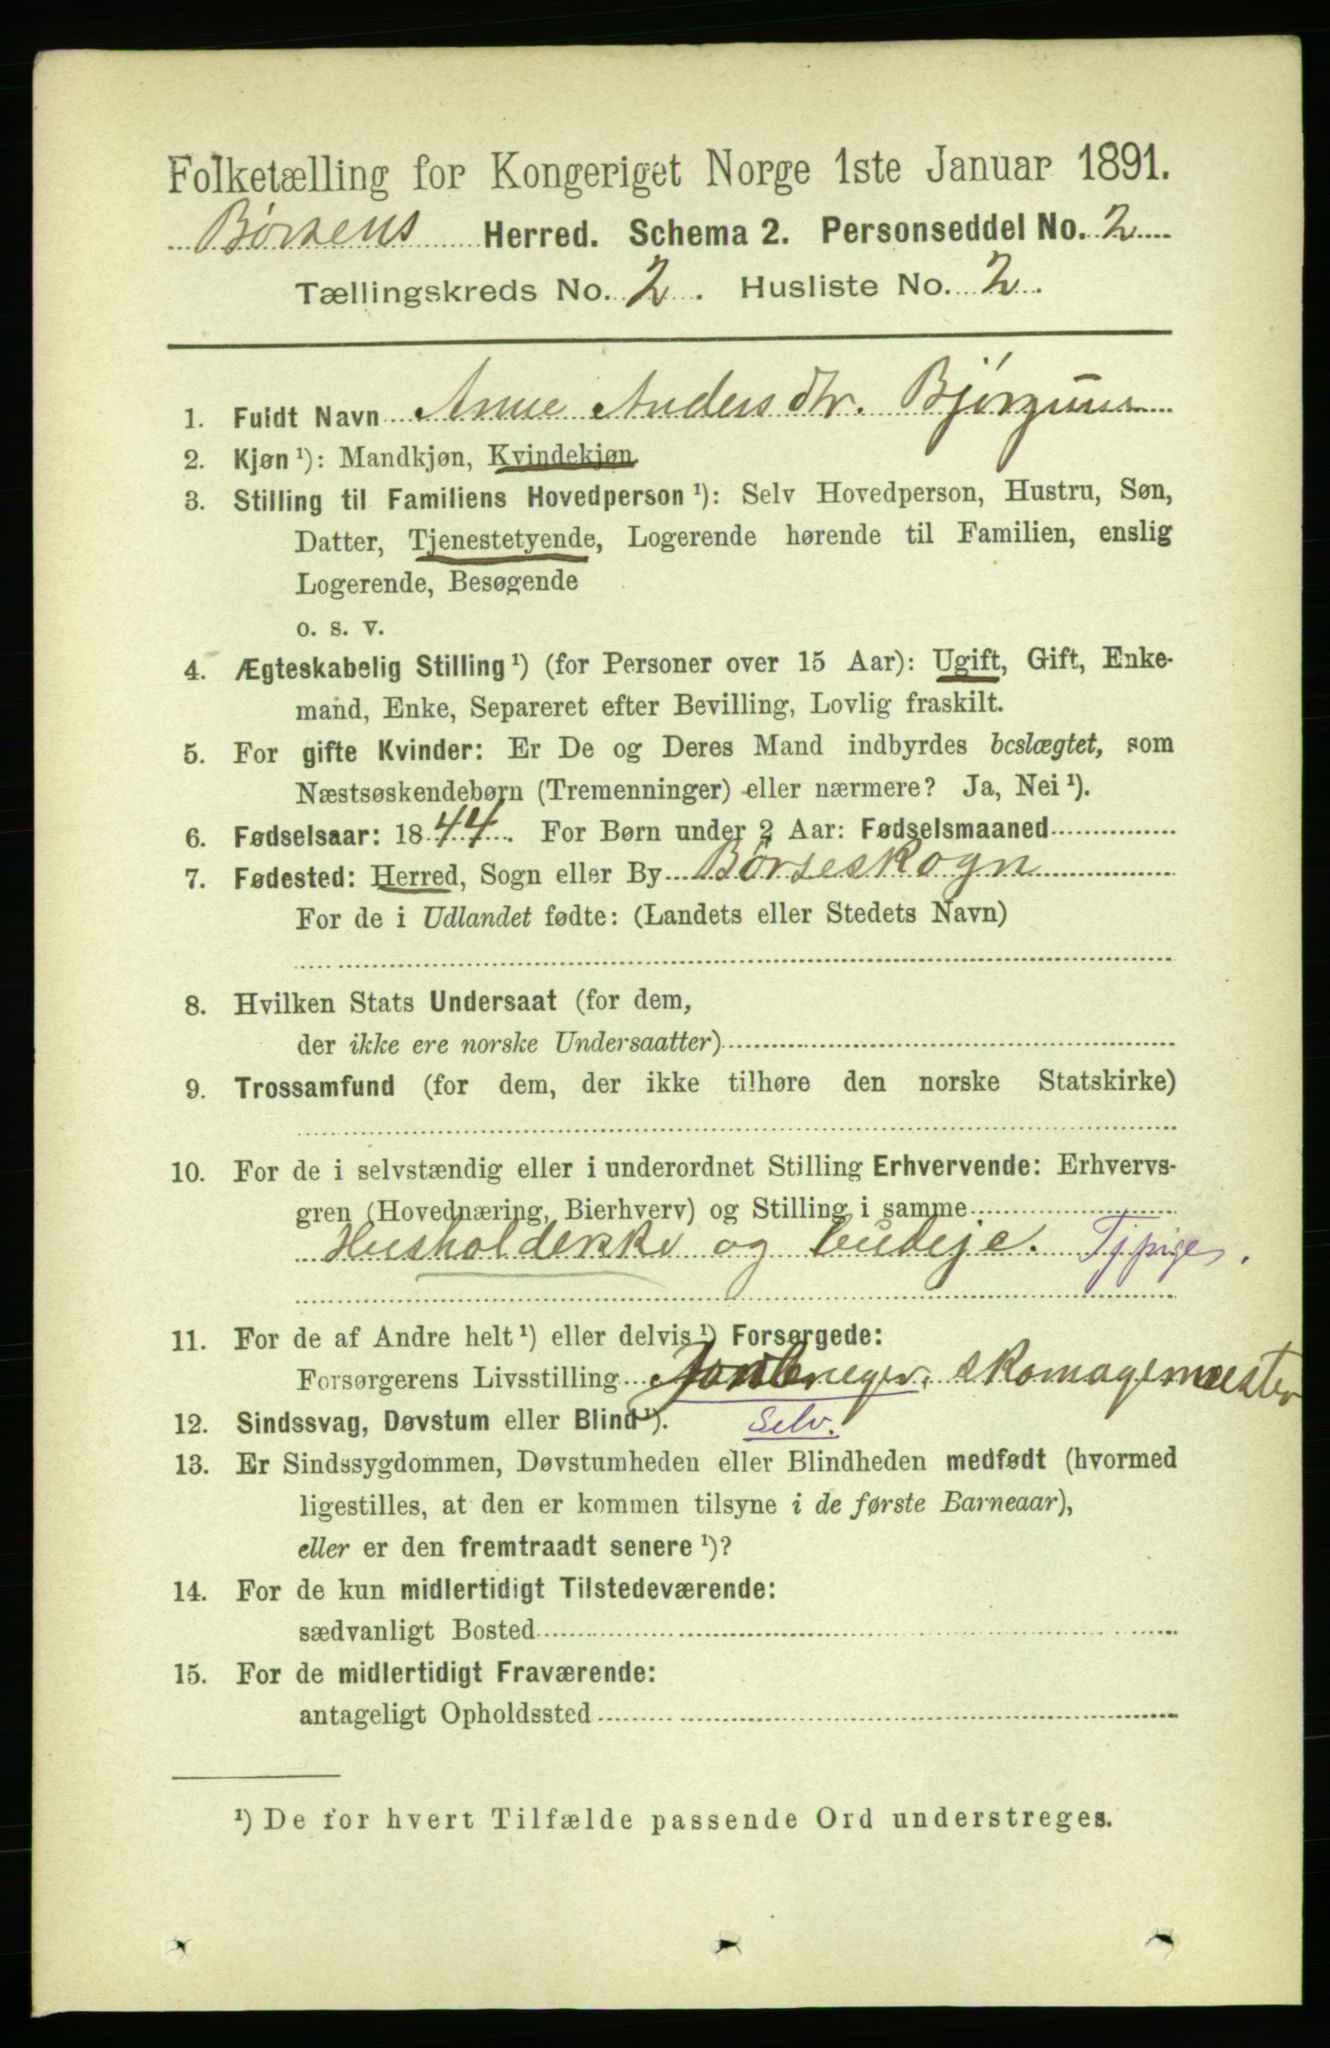 Folketælling for Kongeriget Norge 1ste Januar 1891.
Børsens Herred. Schema 2. Personseddel No. 2
Tællingskreds No. 2. Husliste No. 2.
1. Fuldt Navn Anne Andersdtr.
2. Kjøn ¹): Mandkjøn, Kvindekjøn
3. Stilling til Familiens Hovedperson ¹): Selv Hovedperson, Hustru, Søn,
Datter, Tjenestetyende, Logerende hørende til Familien, enslig
Logerende, Besøgende
o. s. v.
4. Ægteskabelig Stilling ¹) (for Personer over 15 Aar): Ugift, Gift, Enke-
mand, Enke, Separeret efter Bevilling, Lovlig fraskilt.
5. For gifte Kvinder: Er De og Deres Mand indbyrdes beslægtet, som
Næstsøskendebørn (Tremenninger) eller nærmere? Ja, Nei ¹).
6. Fødselsaar: 1844. For Børn under 2 Aar: Fødselsmaaned
7. Fødested: Herred, Sogn eller By Børseskogn
For de i Udlandet fødte: (Landets eller Stedets Navn)
8. Hvilken Stats Undersaat (for dem,
der ikke ere norske Undersaatter)
9. Trossamfund (for dem, der ikke tilhøre den norske Statskirke)
10. For de i selvstændig eller i underordnet Stilling Erhvervende: Erhvervs-
gren (Hovednæring, Bierhverv) og Stilling i samme
Husholderske og budeje. Tjpige.
11. For de af Andre helt ¹) eller delvis ¹) Forsørgede:
Forsørgerens Livsstilling skomagemester
12. Sindssvag, Døvstum eller Blind ¹). Selv.
13. Er Sindssygdommen, Døvstumheden eller Blindheden medfødt (hvormed
ligestilles, at den er kommen tilsyne i de første Barneaar),
eller er den fremtraadt senere ¹)?
14. For de kun midlertidigt Tilstedeværende:
sædvanligt Bosted
15. For de midlertidigt Fraværende:
antageligt Opholdssted
¹) De for hvert Tilfælde passende Ord understreges.